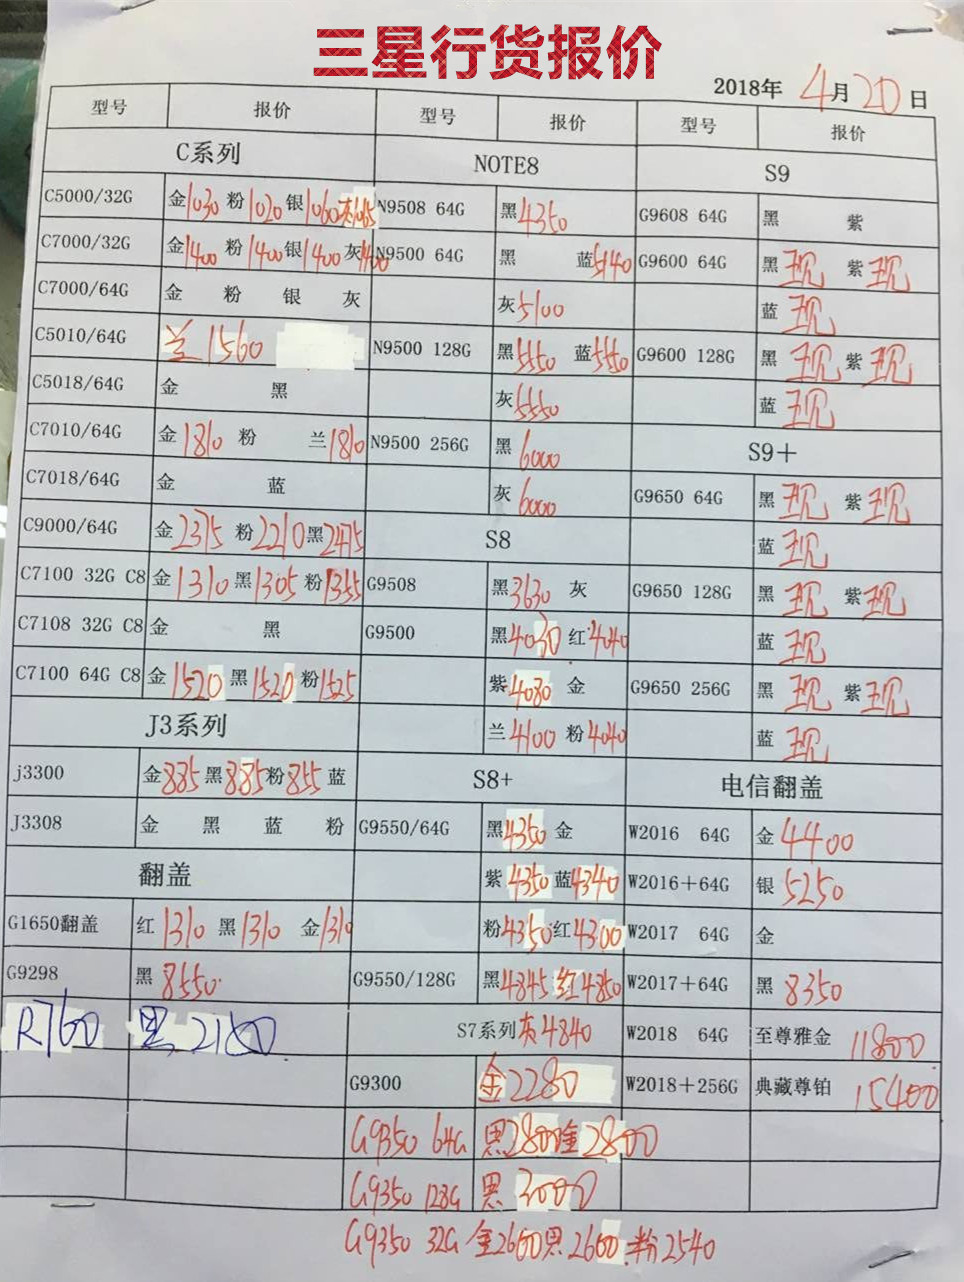 三星行货报价
2018年 4月20日
型号 报价 型号 报价 型号 报价
C系列 NOTE8 S9
C5000/32G 金1030 粉1020 银1060灰1065 N9508 64G 黑4350 G9608 64G 黑 紫
C7000/32G 金1400 粉1400银1400灰1400 N9500 64G 黑 蓝5140 G9600 64G 黑现 紫现
C7000/64G 金 粉 银 灰 灰5100 蓝现
C5010/64G 兰1560 N9500 128G 黑5550 蓝5550 G9600 128G 黑现 紫现
C5018/64G 金 黑 灰5550 蓝现
C7010/64G 金1810 粉 兰1810 N9500 256G 黑6000 S9+
C7018/64G 金 蓝 灰6000 G9650 64G 黑现 紫现
C9000/64G 金2375 粉2210黑2475 S8 蓝现
C7100 32G C8 金1310黑1305粉1355 G9508 黑3630 灰 G9650 128G 黑现 紫现
C7108 32G C8 金 黑 G9500 黑4030 红4040 蓝现
C7100 64G C8 金1520黑1520粉1525 紫4080 金 G9650 256G 黑现 紫现
J3系列 兰4100 粉4040 蓝现
j3300 金835黑885粉855蓝 S8+ 电信翻盖
J3308 金 黑 蓝 粉 G9550/64G 黑4350金 W2016 64G 金4400
翻盖 紫4350蓝4340 W2016+64G 银5250
G1650翻盖 红1310 黑1310 金1310 粉4350红4300 W2017 64G 金
G9298 黑8550 G9550/128G 黑4845红4850 W2017+64G 黑8350
R760 黑2180 S7系列灰4840 W2018 64G 至尊雅金 11800
G9300 金2280 W2018+256G 典藏尊铂 15400
G9350 64G 黑2800金2800
G9350 128G 黑3000
G9350 32G 金2660黑2660粉2540